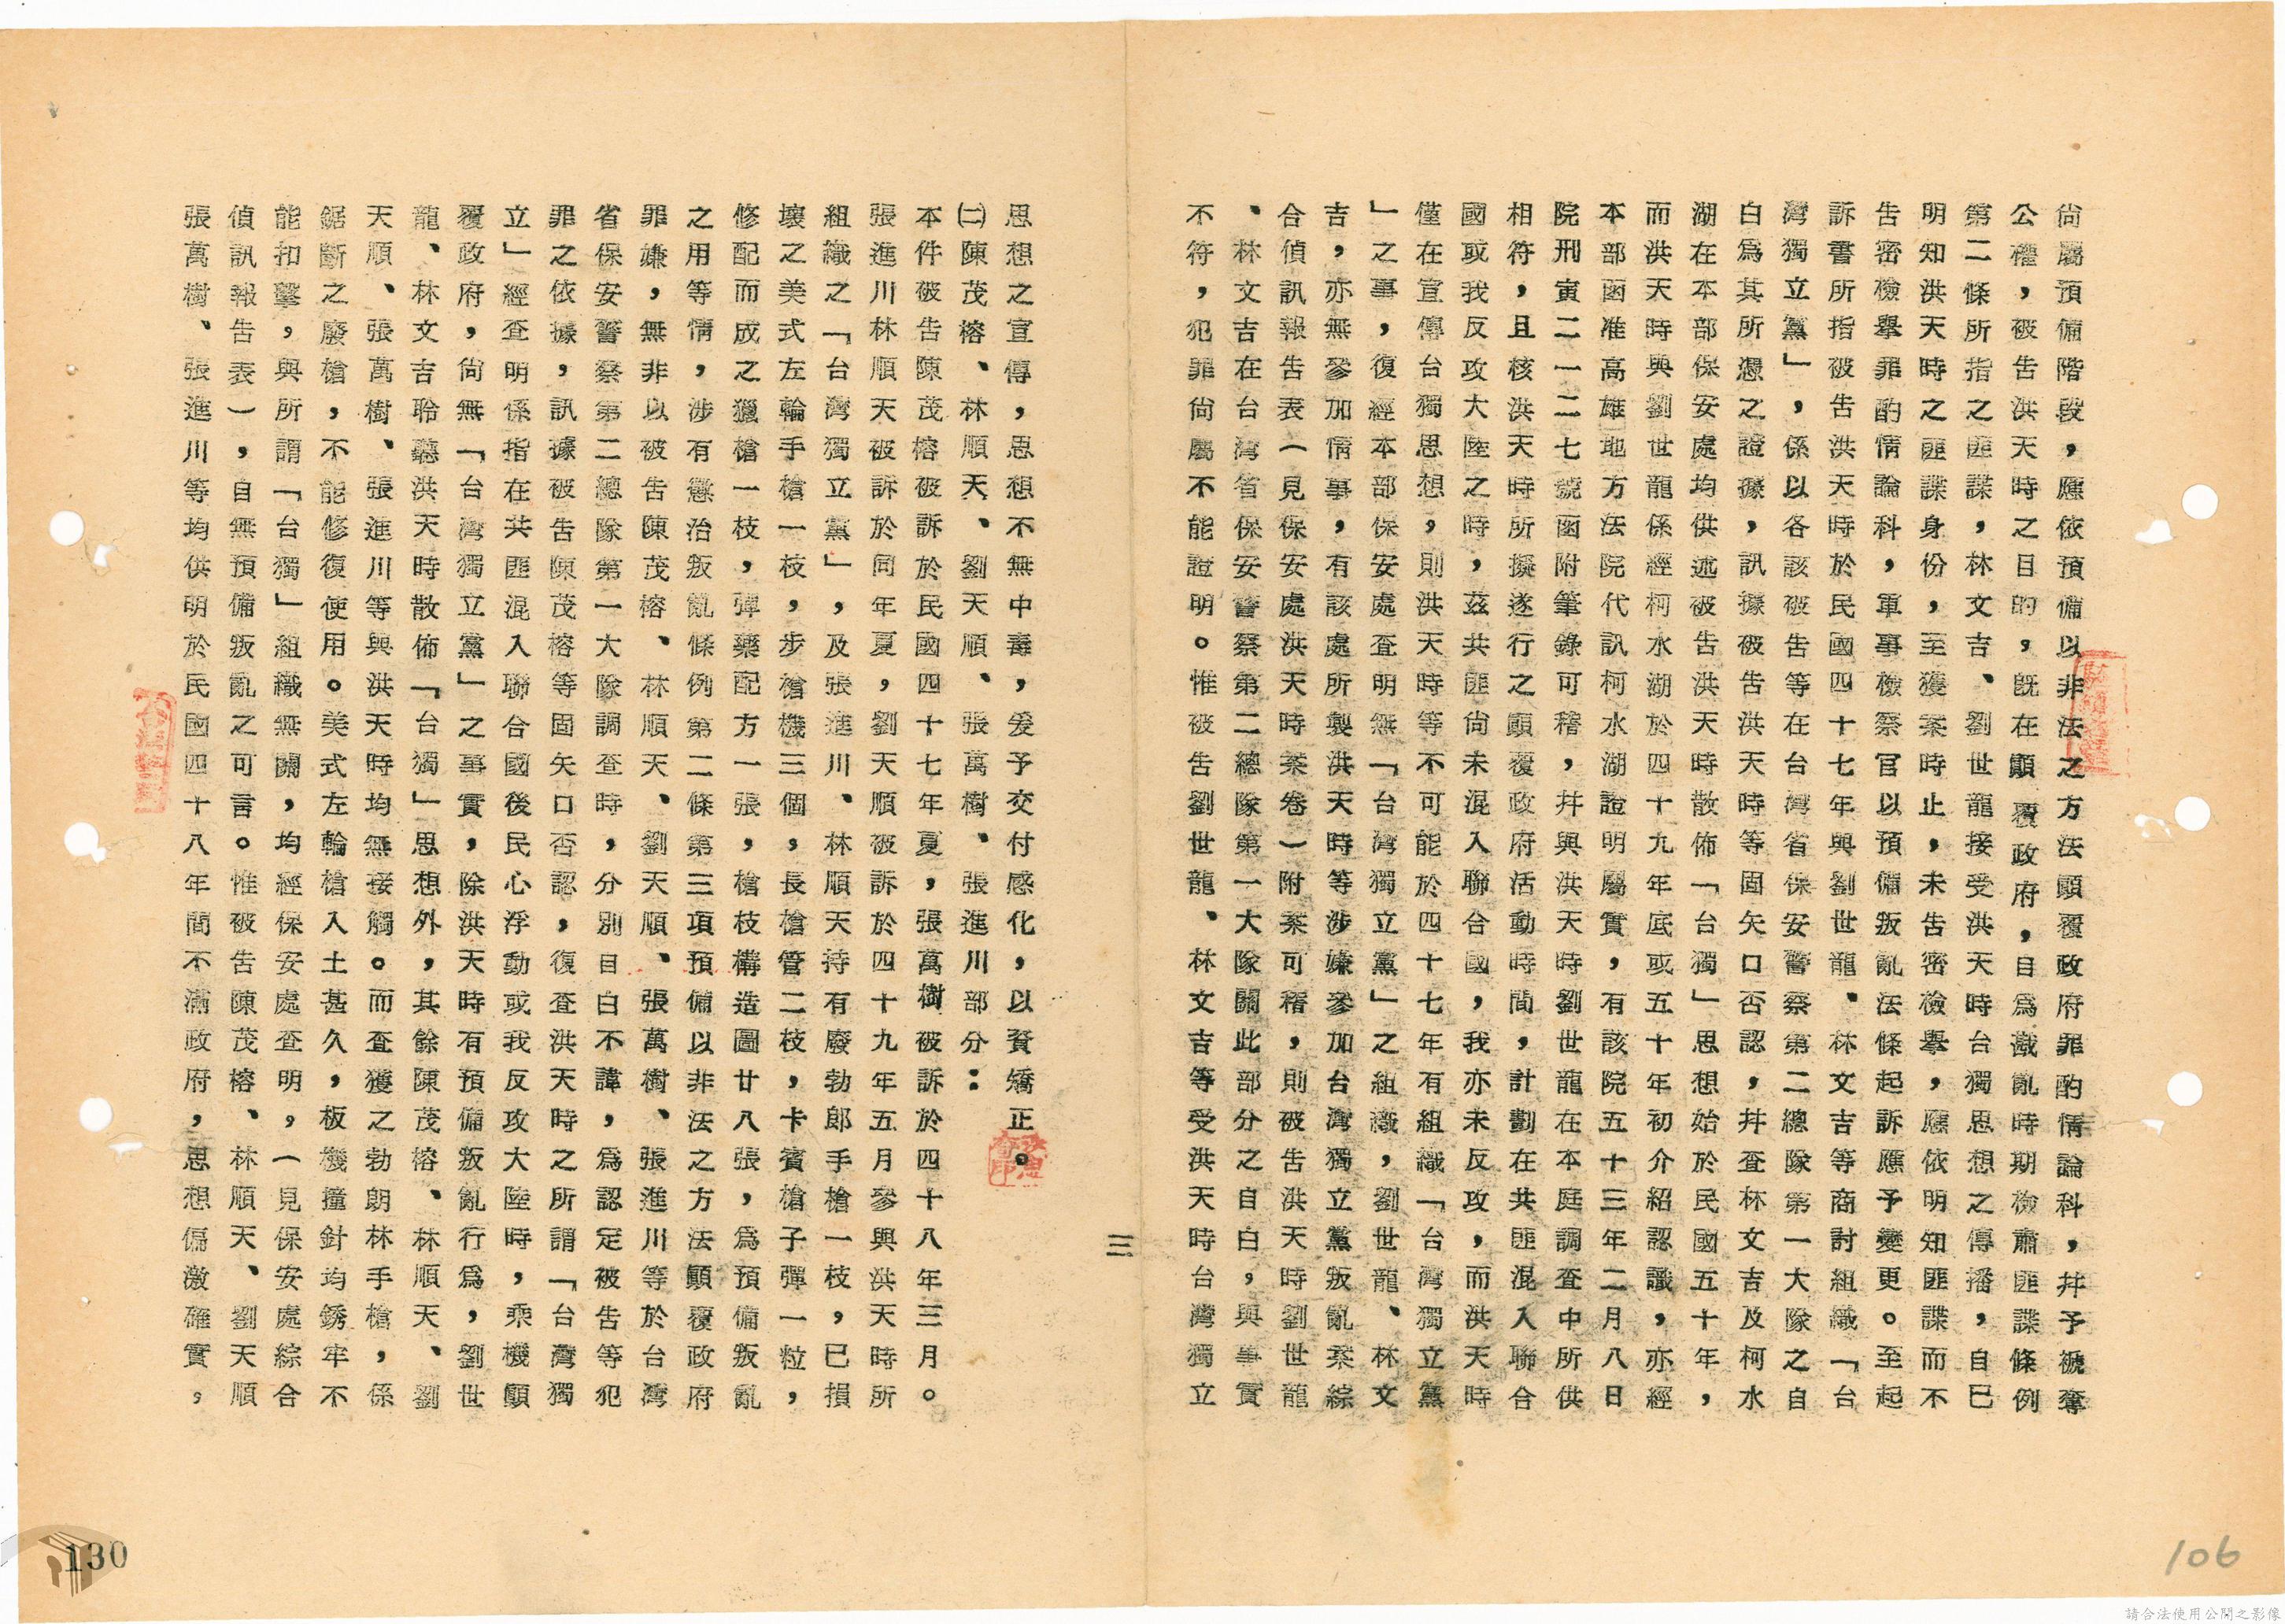 尚屬預備階段，應依預備以非法之方法顛覆政府罪酌情論科，幷予褫奪
公權，被告洪天時之目的，既在顛覆政府，自爲戡亂時期檢肅匪諜條例
第二條所指之匪諜，林文吉、劉世龍接受洪天時台獨思想之傳播，自已
明知洪天時之匪諜身份，至獲案時止，未告密檢舉，應依明知匪諜而不
告密檢舉罪酌情論科，軍事檢察官以預備叛亂法條起訴應予變更。至起
訴書所指被告洪天時於民國四十七年與劉世龍、林文吉等商討組織「台
灣獨立黨」，係以各該被告等在台灣省保安警察第二總隊第一大隊之自
白爲其所憑之證據，訊據被告洪天時等固矢口否認，幷查林文吉及柯水
湖在本部保安處均供述被告洪天時散佈「台獨」思想始於民國五十年，
而洪天時與劉世龍係經柯水湖於四十九年底或五十年初介紹認識，亦經
本部函准高雄地方法院代訊柯水湖證明屬實，有該院五十三年二月八日
院刑寅二一二七號函附筆錄可稽，幷與洪天時劉世龍在本庭調查中所供
相符，且核洪天時所擬遂行之顛覆政府活動時間，計劃在共匪混入聯合
國或我反攻大陸之時，茲共匪尚未混入聯合國，我亦未反攻，而洪天時
僅在宣傳台獨思想，則洪天時等不可能於四十七年有組織「台灣獨立黨
」之事，復經本部保安處查明無「台灣獨立黨」之組織，劉世龍、林文
吉，亦無參加情事，有該處所製洪天時等涉嫌參加台灣獨立黨叛亂案綜
合偵訊報告表（見保安處洪天時案卷）附案可稽，則被告洪天時劉世龍
、林文吉在台灣省保安警察第二總隊第一大隊關此部分之自白，與事實
不符，犯罪尚屬不能證明。惟被告劉世龍、林文吉等受洪天時台灣獨立
三
思想之宣傳，思想不無中毒，爰予交付感化，以資矯正。
㈡陳茂榕、林順天、劉天順、張萬樹、張進川部分：
本件被告陳茂榕被訴於民國四十七年夏，張萬樹被訴於四十八年三月。
張進川林順天被訴於同年夏，劉天順被訴於四十九年五月參與洪天時所
組織之「台灣獨立黨」，及張進川、林順天持有廢勃郎手槍一枝，已損
壞之美式左輪手槍一枝，步槍機三個，長槍管二枝，卡賓槍子彈一粒，
修配而成之獵槍一枝，彈藥配方一張，槍枝構造圖廿八張，爲預備叛亂
之用等情，涉有懲治叛亂條例第二條第三項預備以非法之方法顛覆政府
罪嫌，無非以被告陳茂榕、林順天、劉天順、張萬樹、張進川等於台灣
省保安警察第二總隊第一大隊調查時，分別自白不諱，爲認定被告等犯
罪之依據，訊據被告陳茂榕等固矢口否認，復查洪天時之所謂「台灣獨
立」經查明係指在共匪混入聯合國後民心浮動或我反攻大陸時，乘機顛
覆政府，尚無「台灣獨立黨」之事實，除洪天時有預備叛亂行爲，劉世
龍、林文吉聆聽洪天時散佈「台獨」思想外，其餘陳茂榕、林順天、劉
天順、張萬樹、張進川等與洪天時均無接觸。而查獲之勃朗林手槍，係
鋸斷之廢槍，不能修復使用。美式左輪槍入土甚久，板機撞針均銹牢不
能扣擊，與所謂「台獨」組織無關，均經保安處查明，（見保安處綜合
偵訊報告表），自無預備叛亂之可言。惟被告陳茂榕、林順天、劉天順
張萬樹、張進川等均供明於民國四十八年間不滿政府，思想偏激確實，
130
106
請合法使用公開之影像